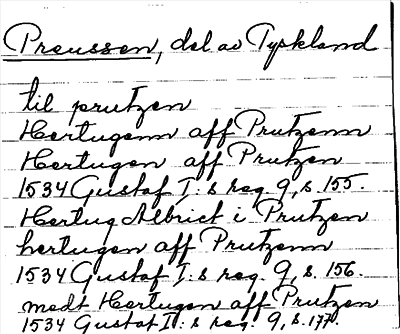 Preussen, del av Tyskland
til prutzen
Hertugenn aff Prutzenn
Hertugen aff Prutzen
1534 Gustaf I:s reg 9, s. 155.
Hertug Albrict i Prutzen
hertugen aff Prutzenn
1534 Gustaf I:s reg. 9, s. 156.
medt Hertugen aff Prutzen
1534 Gustaf I:s reg. 9, s. 177.